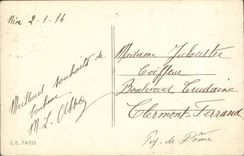 Nice 2-1-14
Meilleurs souhaits de
bonheur
M. L.
Madame
Coiffeur
Boulevard
Clermont-Ferrand
Puy-de-Dôme
PARIS